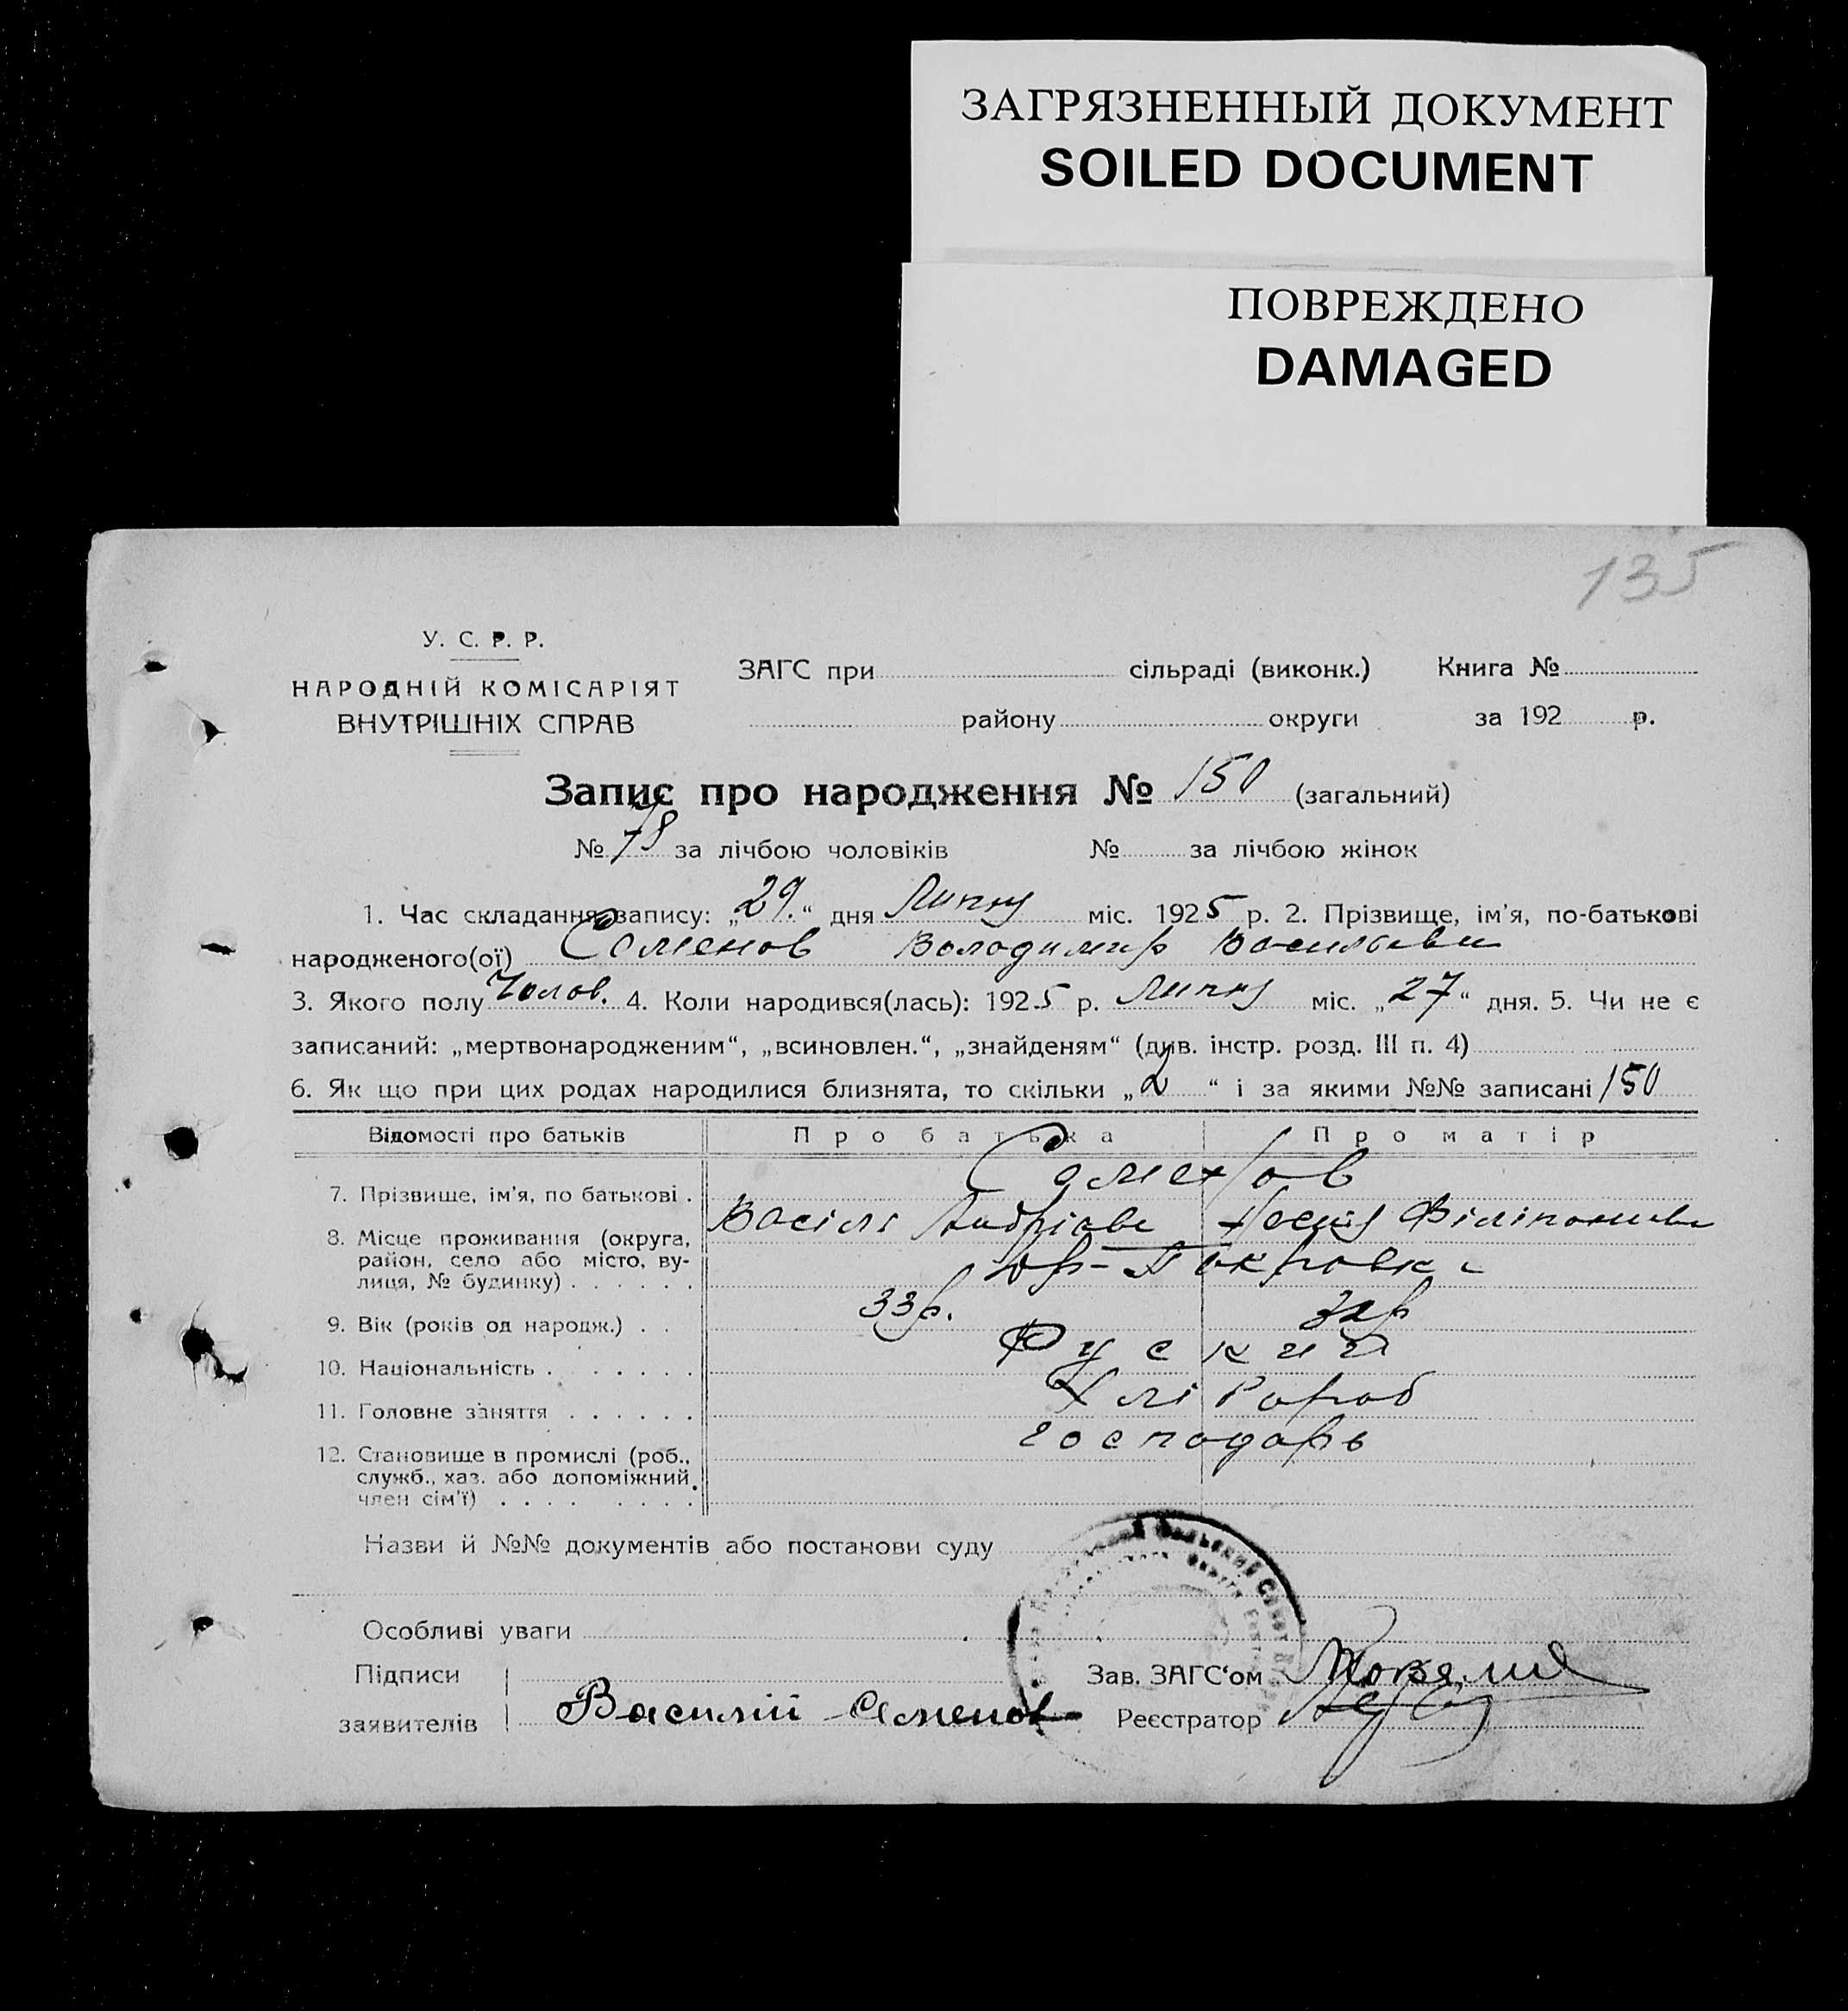 ЗАГРЯЗНЕННЫЙ ДОКУМЕНТ
SOILED DOCUMENT
ПОВРЕЖДЕНО
DAMAGED
135
У. С. Р. Р.
НАРОДНІЙ КОМІСАРІЯТ
ВНУТРІШНІХ СПРАВ
ЗАГС при сільраді (виконк.) Книга №
району округи за 192 р.
Запис про народження № 150 (загальний)
№ 78 за лічбою чоловіків № за лічбою жінок
1. Час складання запису: „29.“ дня Липня міс. 1925 р. 2. Прізвище, ім'я, по-батькові
народженого(ої) Семенов Володимир Васильеви
3. Якого полу Чолов. 4. Коли народився(лась): 1925 р. Липня міс. „27“ дня. 5. Чи не є
записаний: „мертвонародженим“, „всиновлен.“, „знайденям“ (див. інстр. розд. III п. 4)
6. Як що при цих родах народилися близнята, то скільки „2“ і за якими №№ записані 150
Відомості про батьків Про батька Про матір
7. Прізвище, ім'я, по батькові . Семенов
Васіля Андріеве Філіпоновна
8. Місце проживання (округа,
район, село або місто, ву-
лиця, № будинку) . . . . . . Покровка
9. Вік (років од народж.) . . 33р.
10. Національність . . . . . . Руский
11. Головне заняття . . . . . . Хлі Вороб
12. Становище в промислі (роб., господарь
служб., хаз. або допоміжний
член сім'ї) . . . . . . . .
Назви й №№ документів або постанови суду
Особливі уваги
Підписи
заявителів Василий Семенов
Зав. ЗАГС'ом
Реєстратор